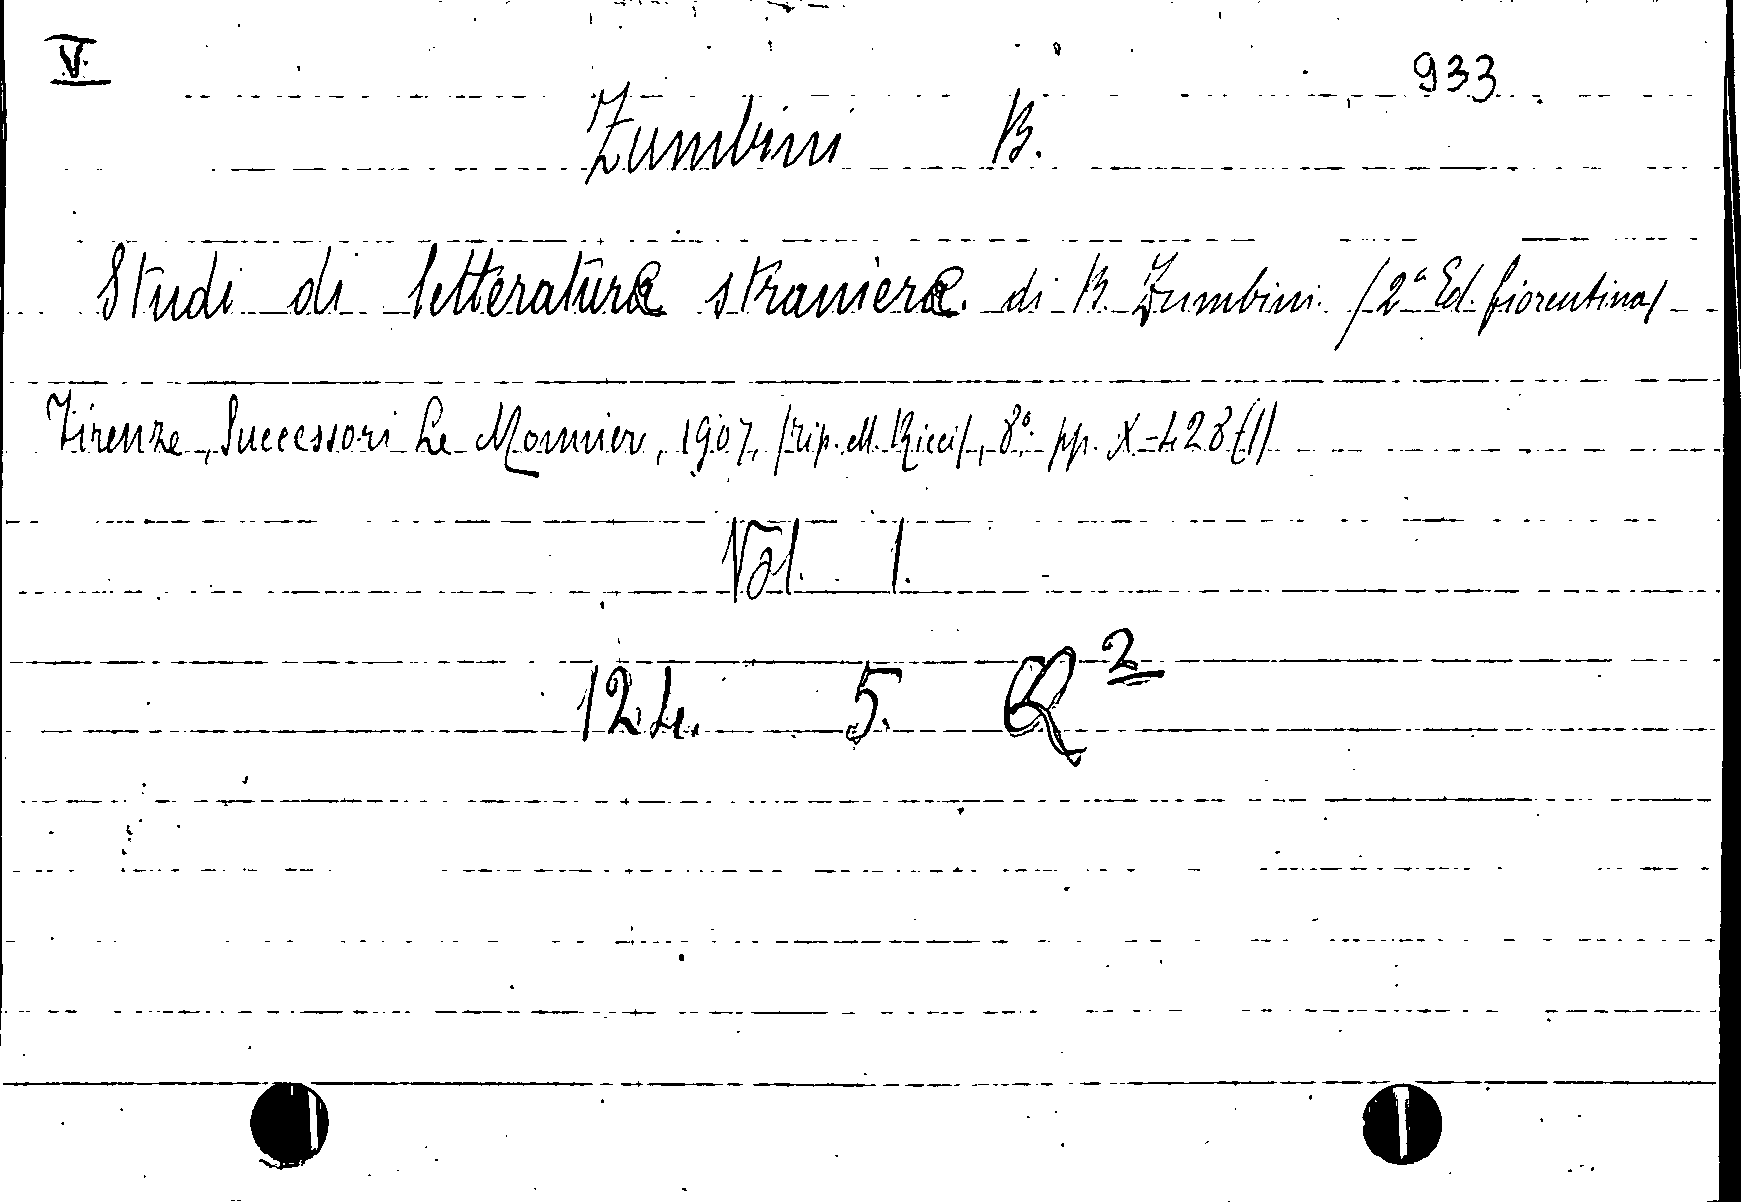 V.
933
Zumbini B.
Studi di letterature straniere. di B. Zumbini. (2ª Ed. fiorentina)
Firenze, Successori Le Monnier, 1907, (tip. M. Ricci), 8º. pp. X-428 (1)
Vol. 1.
124. 5. Q2